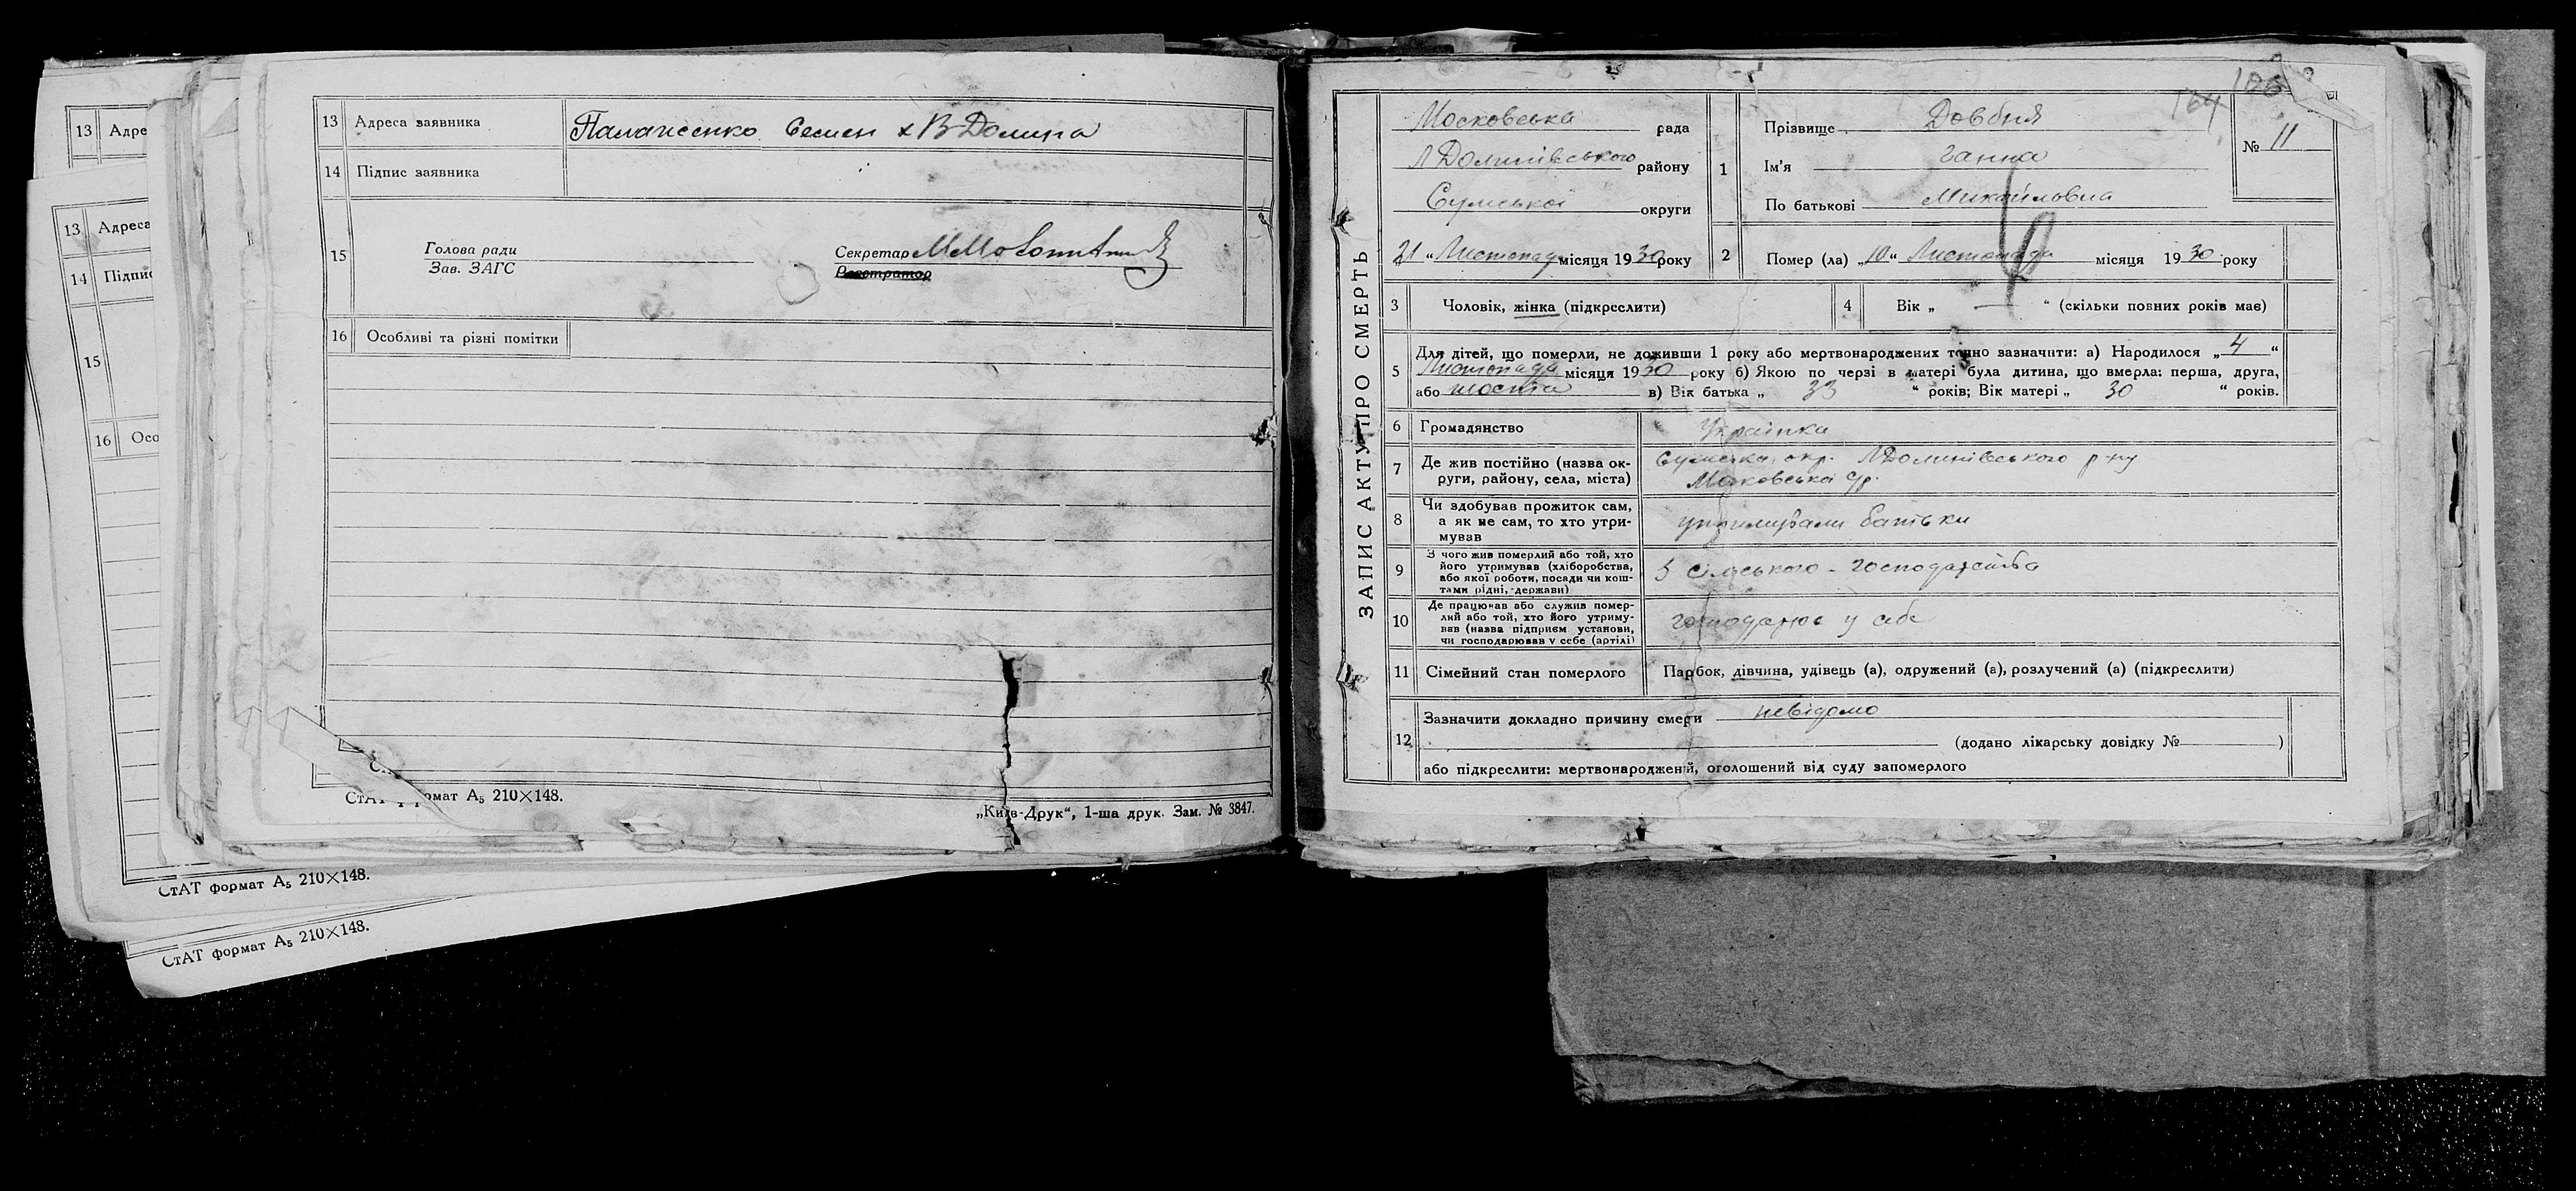 13 Адре
13 Адреса
14 Підпис
15
16 Осо
СтАТ формат А5 210×148.
СтАТ формат А5 210×148.
13 Адреса заявника Семен х В-Долина
14 Підпис заявника
15 Голова ради
Зав. ЗАГС
Секретар
Реєстратор
16 Особливі та різні помітки
формат А5 210×148.
„Київ-Друк“, 1-ша друк. Зам. № 3847.
ЗАПИС АКТУ ПРО СМЕРТЬ
164 106
Московська рада
Л Долинівського району
Сумської округи
„21“ Листопада місяця 1930 року
1 Прізвище Довбня
Ім'я Ганна
По батькові Михайловна
№ 11
2 Помер (ла) „10“ Листопада місяця 1930 року
3 Чоловік, жінка (підкреслити)
4 Вік „ — “ (скільки повних років має)
5 Для дітей, що померли, не доживши 1 року або мертвонароджених точно зазначити: а) Народилося „4“
Листопада місяця 1930 року б) Якою по черзі в матері була дитина, що вмерла: перша, друга,
або шоста в) Вік батька „33“ років; Вік матері „30“ років.
6 Громадянство Українка
7 Де жив постійно (назва округи, району, села, міста) Сумська окр. Л Долинівського р-ну
Московська с/р.
8 Чи здобував прожиток сам,
а як не сам, то хто утримував утримували батьки
9 З чого жив померлий або той, хто
його утримував (хліборобства,
або якої роботи, посади чи коштами рідні, держави) З сільського-господарства
10 Де працював або служив померлий або той, хто його утримував (назва підприєм установи,
чи господарював у себе (артілі) господарює у себе
11 Сімейний стан померлого Парбок, дівчина, удівець (а), одружений (а), розлучений (а) (підкреслити)
12 Зазначити докладно причину смерти невідомо
(додано лікарську довідку № )
або підкреслити: мертвонароджений, оголошений від суду запомерлого